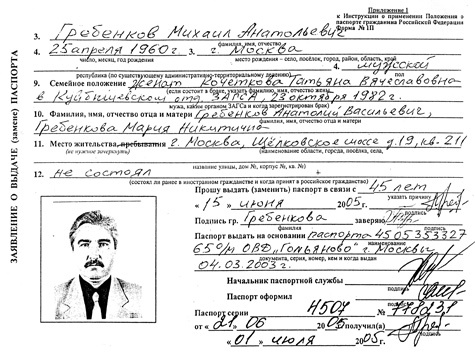 Приложение 1
к Инструкции о применении Положения о
паспорте гражданина Российской Федерации
Форма № 1П
ЗАЯВЛЕНИЕ О ВЫДАЧЕ (замене) ПАСПОРТА
3. Гребенков Михаил Анатольевич
фамилия, имя, отчество
4. 25 апреля 1960 г. г. Москва
число, месяц, год рождения место рождения – село, посёлок, город, район, область, край
4. мужской
республика (по существующему административно-территориальному делению)
9. Семейное положение Женат Кочеткова Татьяна Вячеславовна
(если состоит в браке, указать фамилию, имя, отчество жены
в Куйбышевском отд. ЗАГСа, 23 октября 1982 г.
мужа, каким органом ЗАГСа зарегистрирован брак)
10. Фамилия, имя, отчество отца и матери Гребенков Анатолий Васильевич,
Гребенкова Мария Никитична
фамилия, имя, отчество отца и матери
11. Место жительства, пребывания г. Москва, Щёлковское шоссе д. 19, кв. 211
(не нужное зачеркнуть) (наименование области, города, посёлка, села,
название улицы, дом №, корпус №, кв. №)
12. не состоял
(состоял ли ранее в иностранном гражданстве и когда принят в российское гражданство)
Прошу выдать (заменить) паспорт в связи с 45 лет
указать причину
« 15 » июня 2005 г.
подпись
Подпись гр. Гребенкова заверяю
фамилия подпись
Паспорт выдать на основании паспорта 4505353327
наименование
65 о/м ОВД „Гольяново" г. Москвы
документа, серия, номер, кем и когда выдан
04.03.2003 г.
Начальник паспортной службы
подпись
Паспорт оформил
подпись
Паспорт серии 4507 № 778231
от « 21 » 06 2005 г. получил(а)
подпись
« 01 » июля 2005 г.